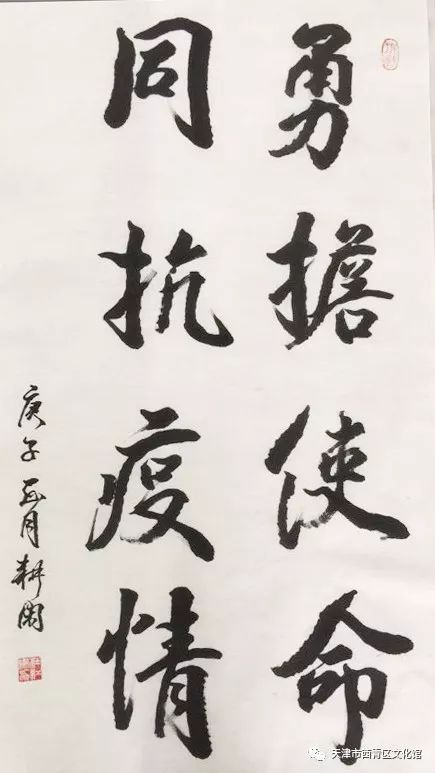 勇擔使命
同抗疫情
庚子正月耕圃
天津市西青区文化馆